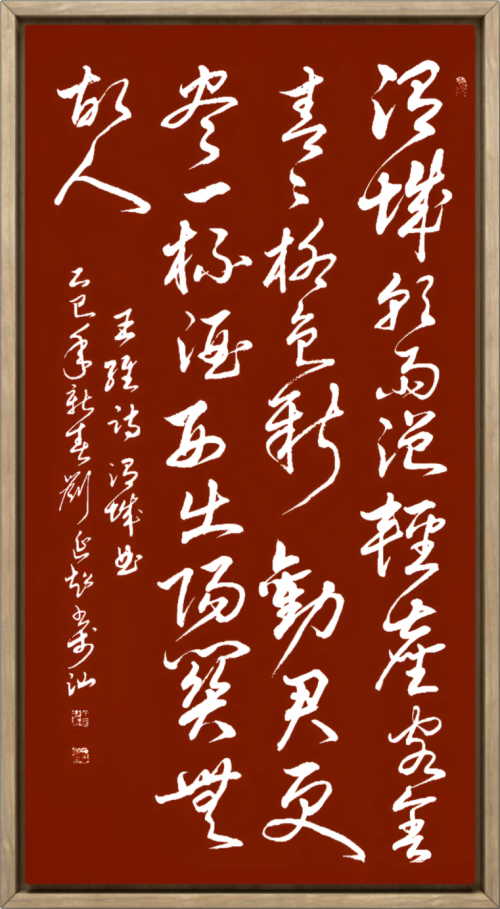 渭城朝雨浥輕塵客舍
青々柳色新勸君更
盡一杯酒西出陽關無
故人
王維詩渭城曲
乙巳年新春劉延